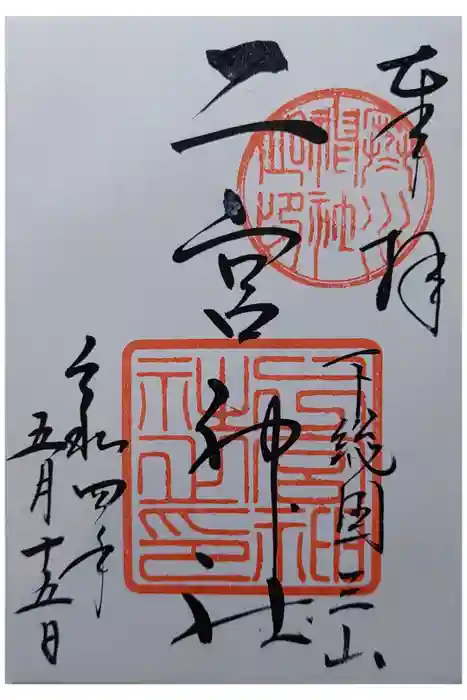 奉拝
下総国三山
二宮神社
令和四年
五月十五日